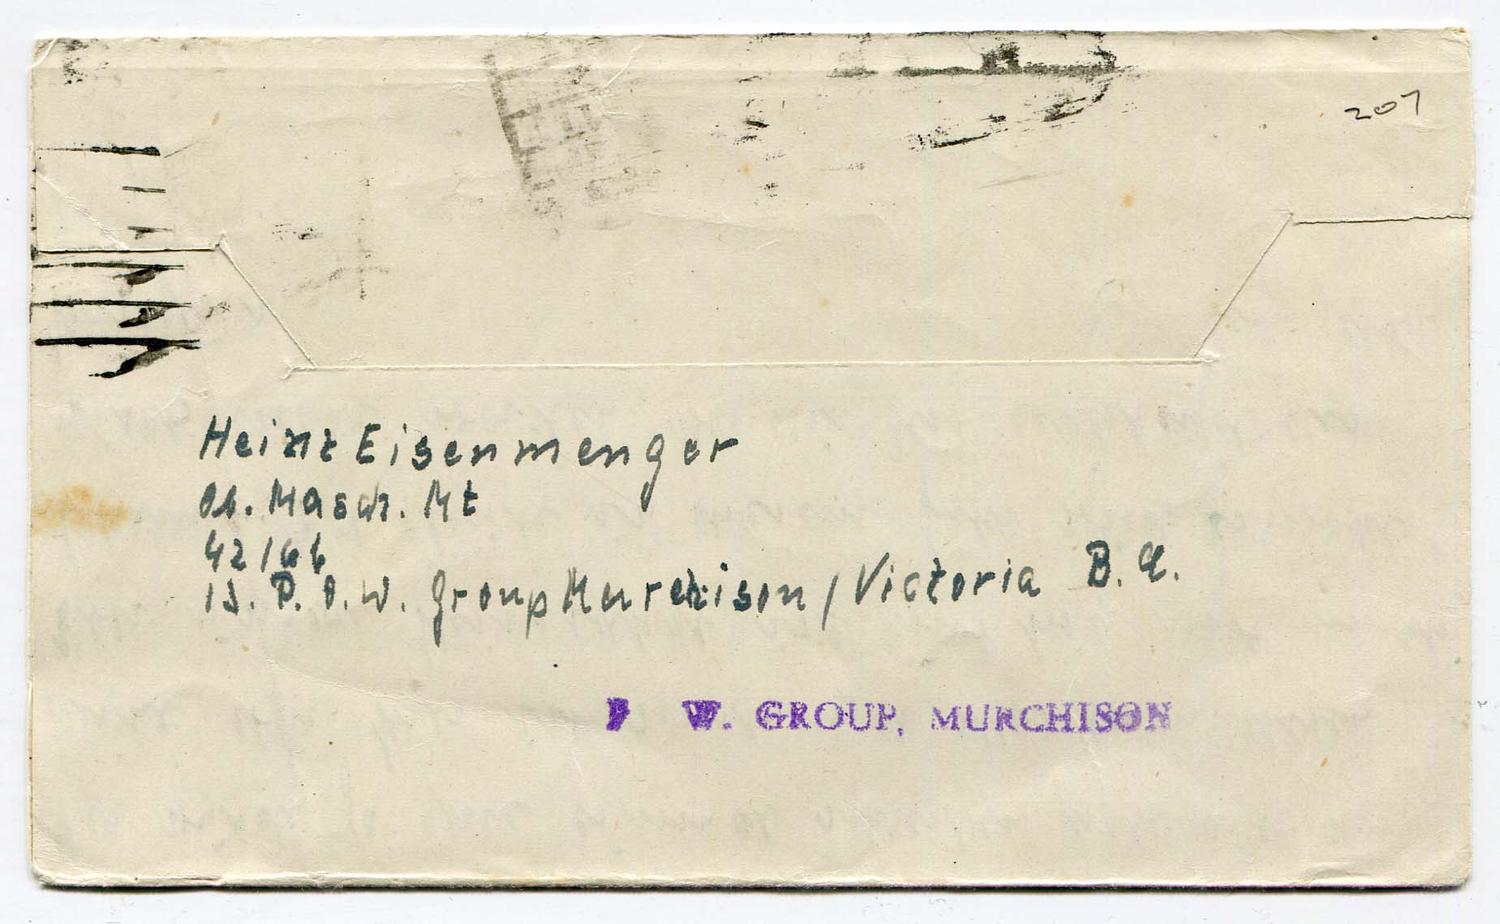 207
Heinz Eisenmenger
Ob. Masch. Mt
42166
13. P.O.W. Group Murchison / Victoria B.
W. GROUP, MURCHISON